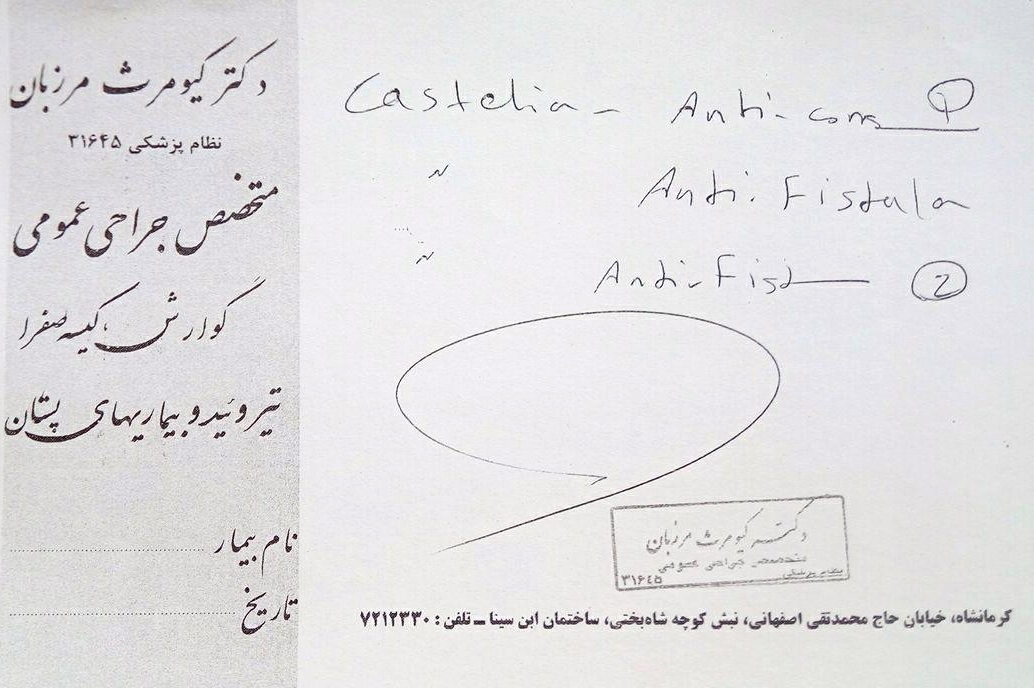 دکتر کیومرث مرزبان
نظام پزشکی ۳۱۶۴۵
متخصص جراحی عمومی
گوارش، کیسه صفرا
تیروئید و بیماریهای پستان
نام بیمار
تاریخ
Castelia - Anti-cons ①
〃 Anti. Fistula
〃 Anti-Fist ②
دکتر کیومرث مرزبان
متخصص جراحی عمومی
نظام پزشکی ۳۱۶٤۵
کرمانشاه، خیابان حاج محمدتقی اصفهانی، نبش کوچه شاه‌بختی، ساختمان ابن سینا ــ تلفن : ۷۲۱۲۳۳۰